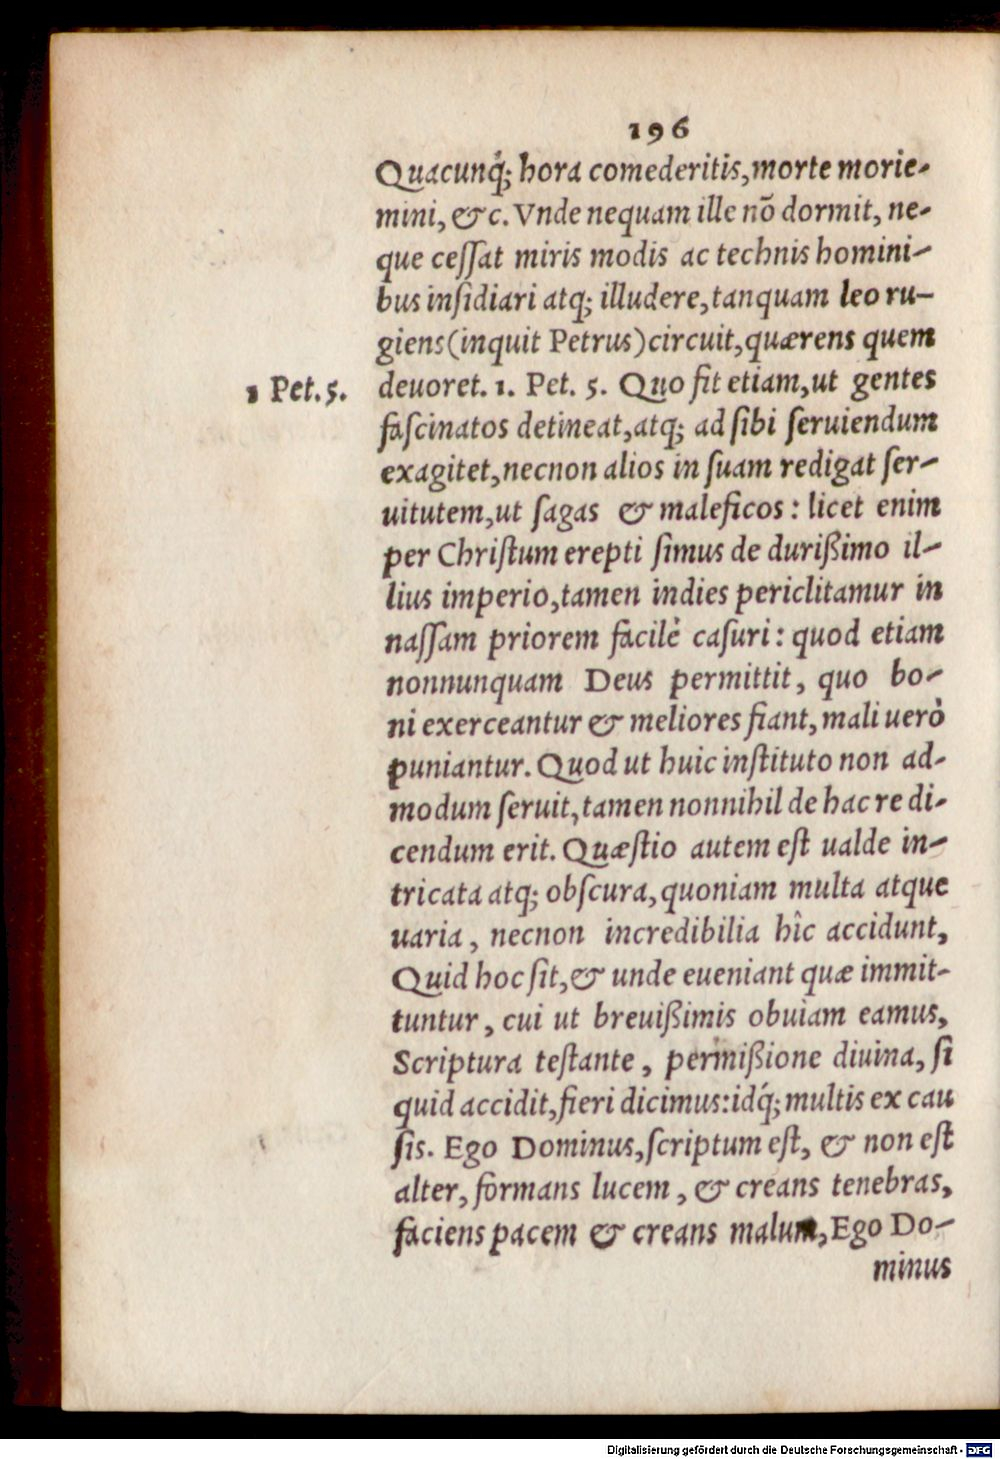 196
Quacunq́; hora comederitis, morte morie-
mini, & c. Vnde nequam ille nō dormit, ne-
que ceſſat miris modis ac technis homini-
bus inſidiari atq; illudere, tanquam leo ru-
giens (inquit Petrus) circuit, quærens quem
1 Pet. 5.
deuoret. 1. Pet. 5. Quo fit etiam, ut gentes
faſcinatos detineat, atq; ad ſibi ſeruiendum
exagitet, necnon alios in ſuam redigat ſer-
uitutem, ut ſagas & maleficos: licet enim
per Chriſtum erepti ſimus de durißimo il-
lius imperio, tamen indies periclitamur in
naſſam priorem facilè caſuri: quod etiam
nonnunquam Deus permittit, quo bo-
ni exerceantur & meliores fiant, mali uerò
puniantur. Quod ut huic inſtituto non ad-
modum ſeruit, tamen nonnihil de hac re di-
cendum erit. Quæſtio autem eſt ualde in-
tricata atq; obſcura, quoniam multa atque
uaria, necnon incredibilia hîc accidunt,
Quid hoc ſit, & unde eueniant quæ immit-
tuntur, cui ut breuißimis obuiam eamus,
Scriptura teſtante, permißione diuina, ſi
quid accidit, fieri dicimus: idq́; multis ex cau
ſis. Ego Dominus, ſcriptum eſt, & non eſt
alter, formans lucem, & creans tenebras,
faciens pacem & creans malum, Ego Do-
minus
Digitalisierung gefördert durch die Deutsche Forschungsgemeinschaft - DFG